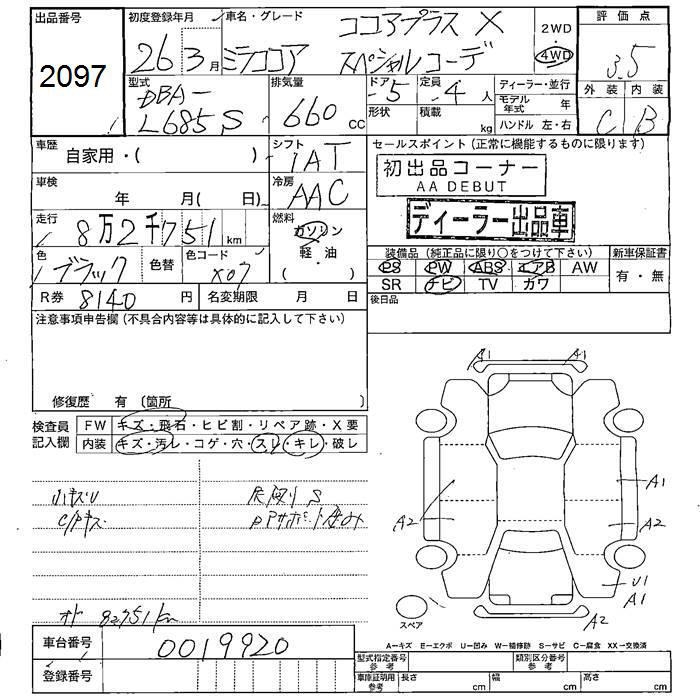 出品番号
2097
初度登録年月
26年3月
車名・グレード
ココアプラス X
ミラココア スペシャルコーデ
2WD
4WD
評価点
3.5
外装 内装
C B
型式
DBA-
L685S
排気量
660 cc
ドア
5
形状
定員
4人
積載
kg
ディーラー・並行
モデル年式 年
ハンドル 左・右
車歴
自家用・( )
シフト
IAT
車検
年 月( 日)
冷房
AAC
走行
8万2千751km
燃料
ガソリン
軽・油
( )
色
ブラック
色替
色コード
X07
R券 8140 円
名変期限 月 日
セールスポイント (正常に機能するものに限ります)
初出品コーナー
AA DEBUT
ディーラー出品車
装備品 (純正品に限り○をつけて下さい)
新車保証書
PS PW ABS エアB AW
SR ナビ TV カワ
有・無
後日品
注意事項申告欄 (不具合内容等は具体的に記入して下さい)
修復歴 有 (箇所 )
検査員
記入欄
FW キズ・飛石・ヒビ割・リペア跡・X要
内装 キズ・汚レ・コゲ・穴・スレ・キレ・破レ
小キズU
S
済み
82751km
車台番号
0019920
登録番号
A1
A1
A1
A2
A2
U1
A1
A2
スペア
A=キズ E=エクボ U=凹み W=補修跡 S=サビ C=腐食 XX=交換済
型式指定番号
参考
類別区分番号
参考
車庫証明用
参考
長さ cm
幅 cm
高さ cm